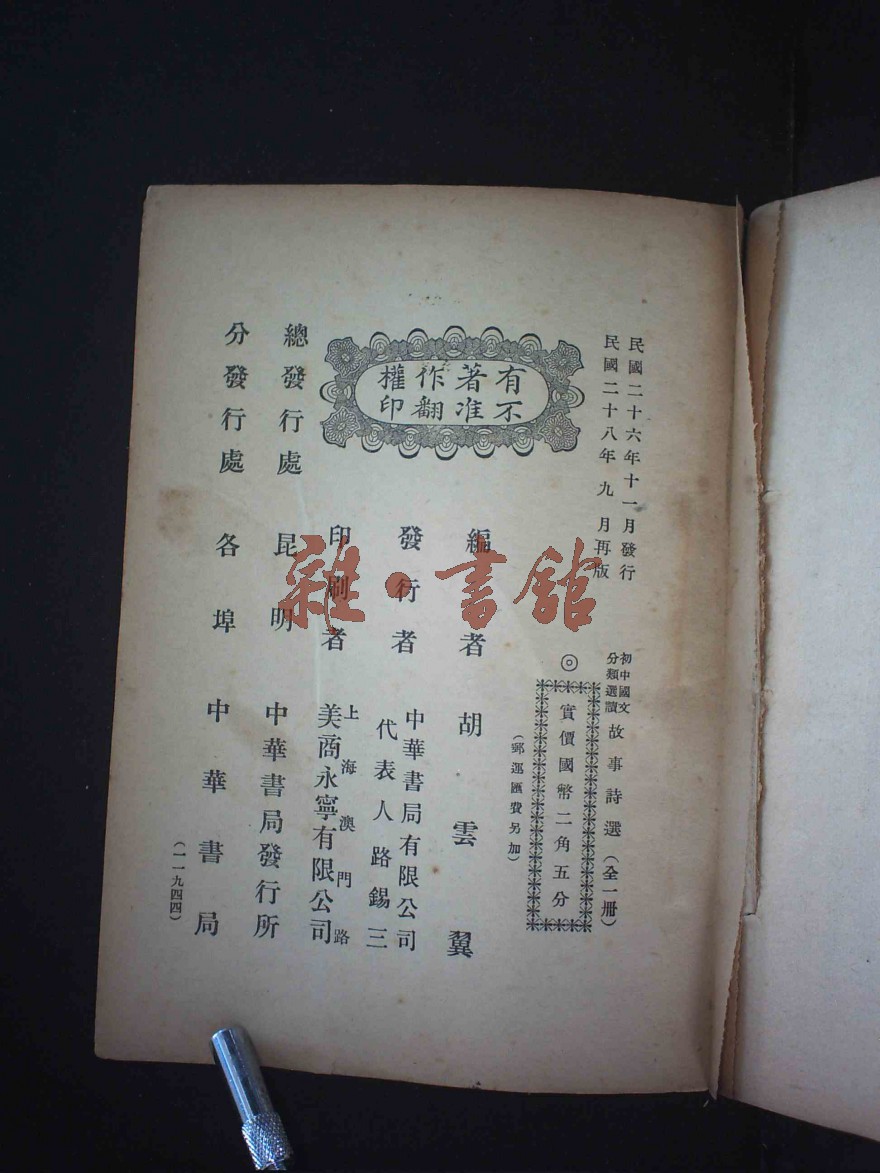 民國二十六年十一月發行
民國二十八年九月再版
初中國文
分類選讀
故事詩選（全一冊）
◎實價國幣二角五分
（郵運匯費另加）
有著作權
不准翻印
編者 胡雲翼
發行者 中華書局有限公司
代表人路錫三
印刷者 上海澳門路
美商永寧有限公司
總發行處 昆明 中華書局發行所
分發行處 各埠 中華書局
（一一九四四）
雜·書館